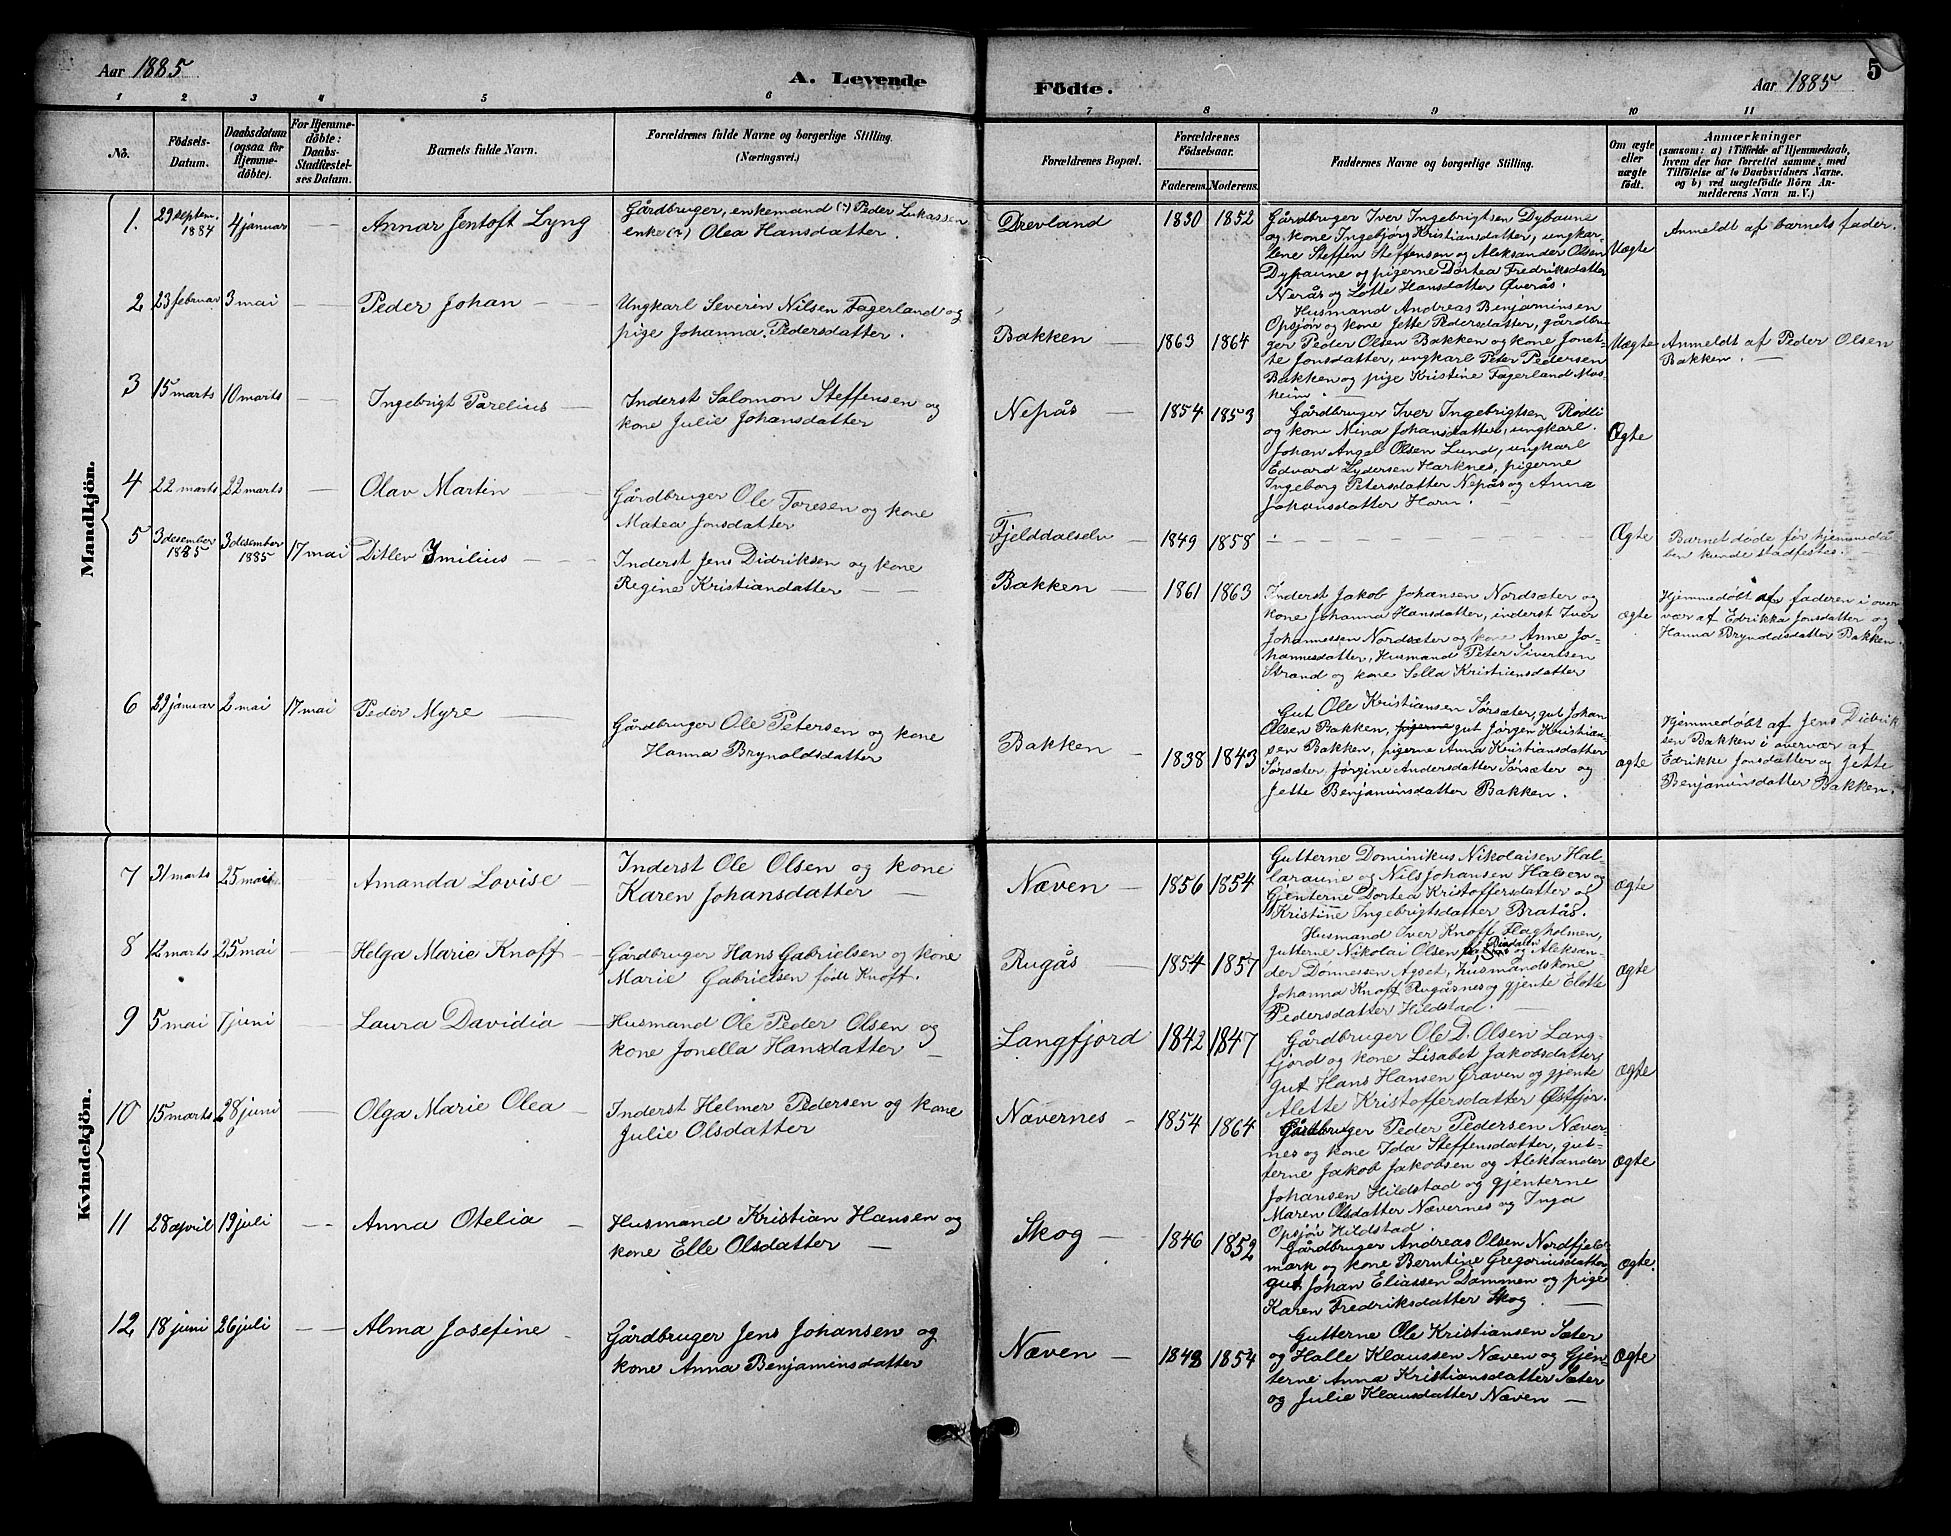 Aar 1885
A. Levende
Födte.
Aar 1885
5
1 2 3 4 5 6 7 8 9 10 11
No.
Födsels-
Datum.
Daabsdatum
(ogsaa for
Hjemme-
döbte).
For Hjemme-
döbte:
Daabs-
Stadfæstel-
ses Datum.
Barnets fulde Navn.
Forældrenes fulde Navne og borgerlige Stilling.
(Næringsvei.)
Forældrenes Bopæl.
Forældrenes
Födselsaar.
Faderens. Moderens.
Faddernes Navne og borgerlige Stilling.
Om ægte
eller
uægte
födt.
Anmærkninger
(saasom: a) i Tilfælde af Hjemmedaab,
hvem der har forrettet samme, med
Tilföielse af to Daabsvidners Navne.
og b) ved uegtefödte Börn An-
melderens Navn m. V.)
Mandkjön.
1. 29 septem. 1884 4 januar Annar Jentoft Lyng
Gårdbruger, enkemand (:) Peder Lukassen
enke (:) Olea Hansdatter.
Drevland 1830 1852
Gårdbruger Iver Ingebrigtsen Dybaune
og kone Ingebjørg Kristiansdatter, ungkar-
lene Steffen Steffensen og Aleksander Olsen
Dybaune og pigerne Dortea Fredriksdatter
Nerås og Lotte Hansdatter Øverås.
Uægte
Anmeldt af barnets fader.
2 23 februar 3 mai Peder Johan
Ungkarl Severin Nilsen Fagerland og
pige Johanna Pedersdatter.
Bakken 1863 1864
Husmand Andreas Benjaminsen
Opsjøn og kone Jette Pedersdatter, gårdbru-
ger Peder Olsen Bakken og kone Jonet-
te Jonsdatter, ungkarl Peter Pedersen
Bakken og pige Kristine Fagerland Mos-
heim.
Uægte
Anmeldt af Peder Olsen
Bakken.
3 15 marts 10 marts Ingebrigt Parelius
Inderst Salomon Steffensen og
kone Julie Johansdatter
Nepås 1854 1853
Gårdbruger Iver Ingebrigtsen Rødli
og kone Mina Johansdatter, ungkarl
Johan Angel Olsen Lund, ungkarl
Edvard Lydersen Harknes, pigerne
Ingeborg Petersdatter Nepås og Anna
Johansdatter Horn.
Ægte
4 22 marts 22 marts Olav Martin
Gårdbruger Ole Toresen og kone
Matea Jonsdatter
Fjelddalselv 1849 1858
Ægte
Barnet døde før hjemmedå-
ben kunde stadfestes.
5 3 desember 1885 3 desember 1885 17 mai Ditlev Emilius
Inderst Jens Didriksen og kone
Regine Kristiandatter
Bakken 1861 1863
Inderst Jakob Johansen Nordsæter og
kone Johanna Hansdatter, inderst Iver
Johannessen Nordsæter og kone Anne Jo-
hannesdatter, Husmand Peter Sivertsen
Strand og kone Sella Kristiansdatter
ægte
Hjemmedøbt af faderen i over-
vær af Edrikka Jonsdatter og
Hanna Brynoldsdatter Bakken
6 29 januar 2 mai 17 mai Peder Myre
Gårdbruger Ole Petersen og kone
Hanna Brynoldsdatter
Bakken 1838 1843
Gut Ole Kristiansen Sørsæter, gut Johan
Olsen Bakken, pigerne gut Jørgen Kristian-
sen Bakken, pigerne Anna Kristiansdatter
Sørsæter, Jørgine Andersdatter Sørsæter og
Jette Benjaminsdatter Bakken.
ægte
Hjemmedøbt af Jens Didrik
sen Bakken i overvær af
Edrikke Jonsdatter og Jette
Benjaminsdatter Bakken.
Kvindekjön.
7 31 marts 25 mai Amanda Lovise
Inderst Ole Olsen og kone
Karen Johansdatter
Næven 1856 1854
Gutterne Dominikus Nikolaisen Hal-
laraune og Nils Johansen Halsen og
Gjenterne Dortea Kristoffersdatter og
Kristine Ingebrigtsdatter Bratås.
ægte
8 12 marts 25 mai Helga Marie Knoff
Gårdbruger Hans Gabrielsen og kone
Marie Gabrielsen født Knoff.
Rugås 1854 1857
Husmand Iver Knoff Flagholmen,
gutterne Nikolai Olsen og Aleksan-
der Dønnessen Agset, husmandskone
Johanna Knoff Rugåsnes og gjente Elotte
Pedersdatter Hildstad.
ægte
9 5 mai 7 juni Laura Davidia
Husmand Ole Peder Olsen og
kone Jonella Hansdatter
Langfjord 1842 1847
Gårdbruger Ole D. Olsen Lang-
fjord og kone Lisabet Jakobsdatter,
gut Hans Hansen Graven og gjente
Alette Kristoffersdatter Østfjor.
ægte
10 15 marts 28 juni Olga Marie Olea
Inderst Helmer Pedersen og kone
Julie Olsdatter
Nævernes 1854 1864
Gårdbruger Peder Pedersen Næver-
nes og kone Ida Steffensdatter, gut-
terne Jakob Jakobsen og Aleksander
Johansen Hildstad og gjenterne
Maren Olsdatter Nævernes og Inga
Opsjøn Hildstad.
Ægte
11 28 april 19 juli Anna Otelia
Husmand Kristian Hansen og
kone Elle Olsdatter
Skog 1846 1852
Gårdbruger Andreas Olsen Nordfjeld
mark og kone Berntine Gregoriusdatter,
gut Johan Eliassen Dammen og pige
Karen Fredriksdatter Skog.
Ægte.
12 18 juni 26 juli Alma Josefine
Gårdbruger Jens Johansen og
kone Anna Benjaminsdatter
Næven 1848 1854
Gutterne Ole Kristiansen Sæter
og Halle Klaussen Næven og Gjen-
terne Anna Kristiansdatter Sæter
og Julie Klausdatter Næven
Ægte